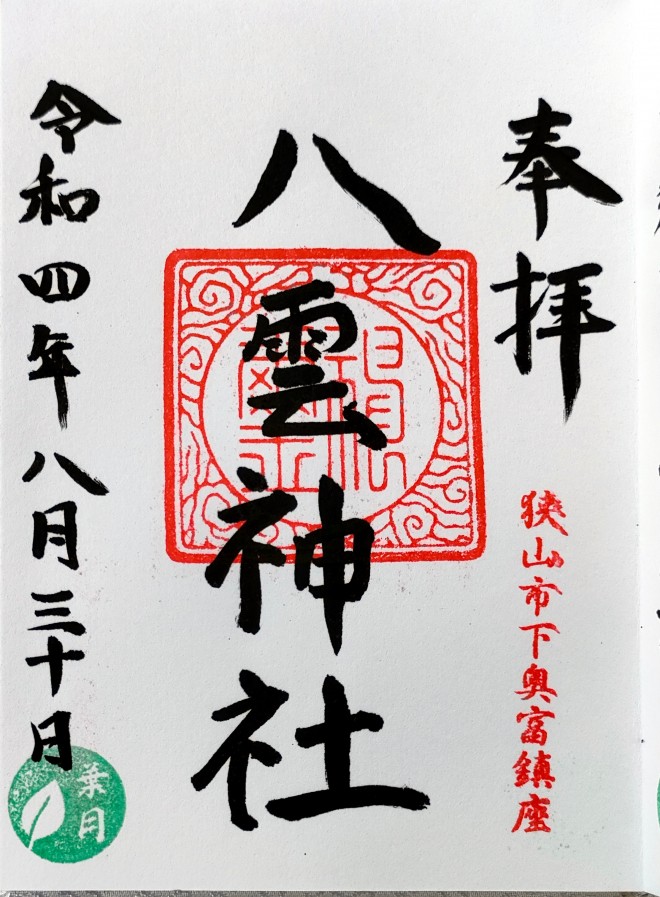 奉拝
狭山市下奥富鎮座
八雲神社
令和四年八月三十日
葉月